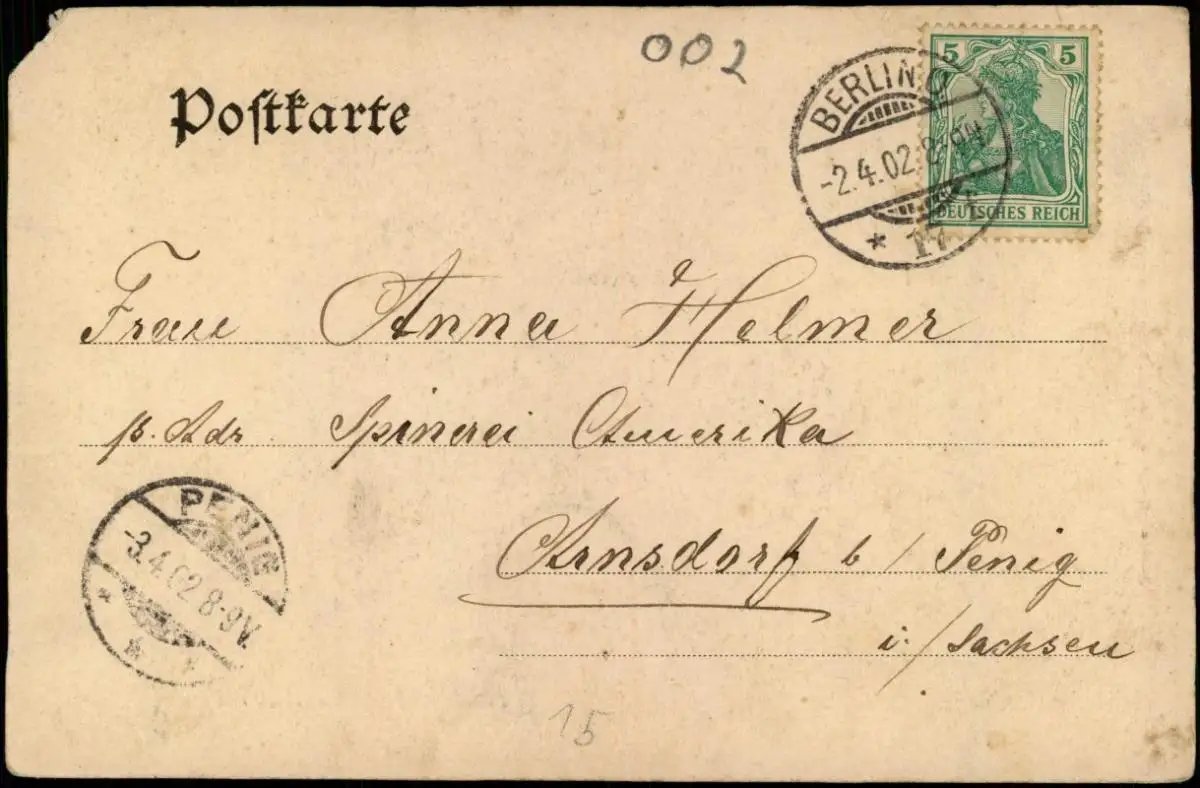 002
5 5
Postkarte
BERLIN C
-2.4.02. 8-9N
* 17
DEUTSCHES REICH
Frau Anna Helmer
p. Adr Spinerei Amerika
Arnsdorf b/ Penig
i./Sachsen
PENIG
-3.4.02 8-9V.
15